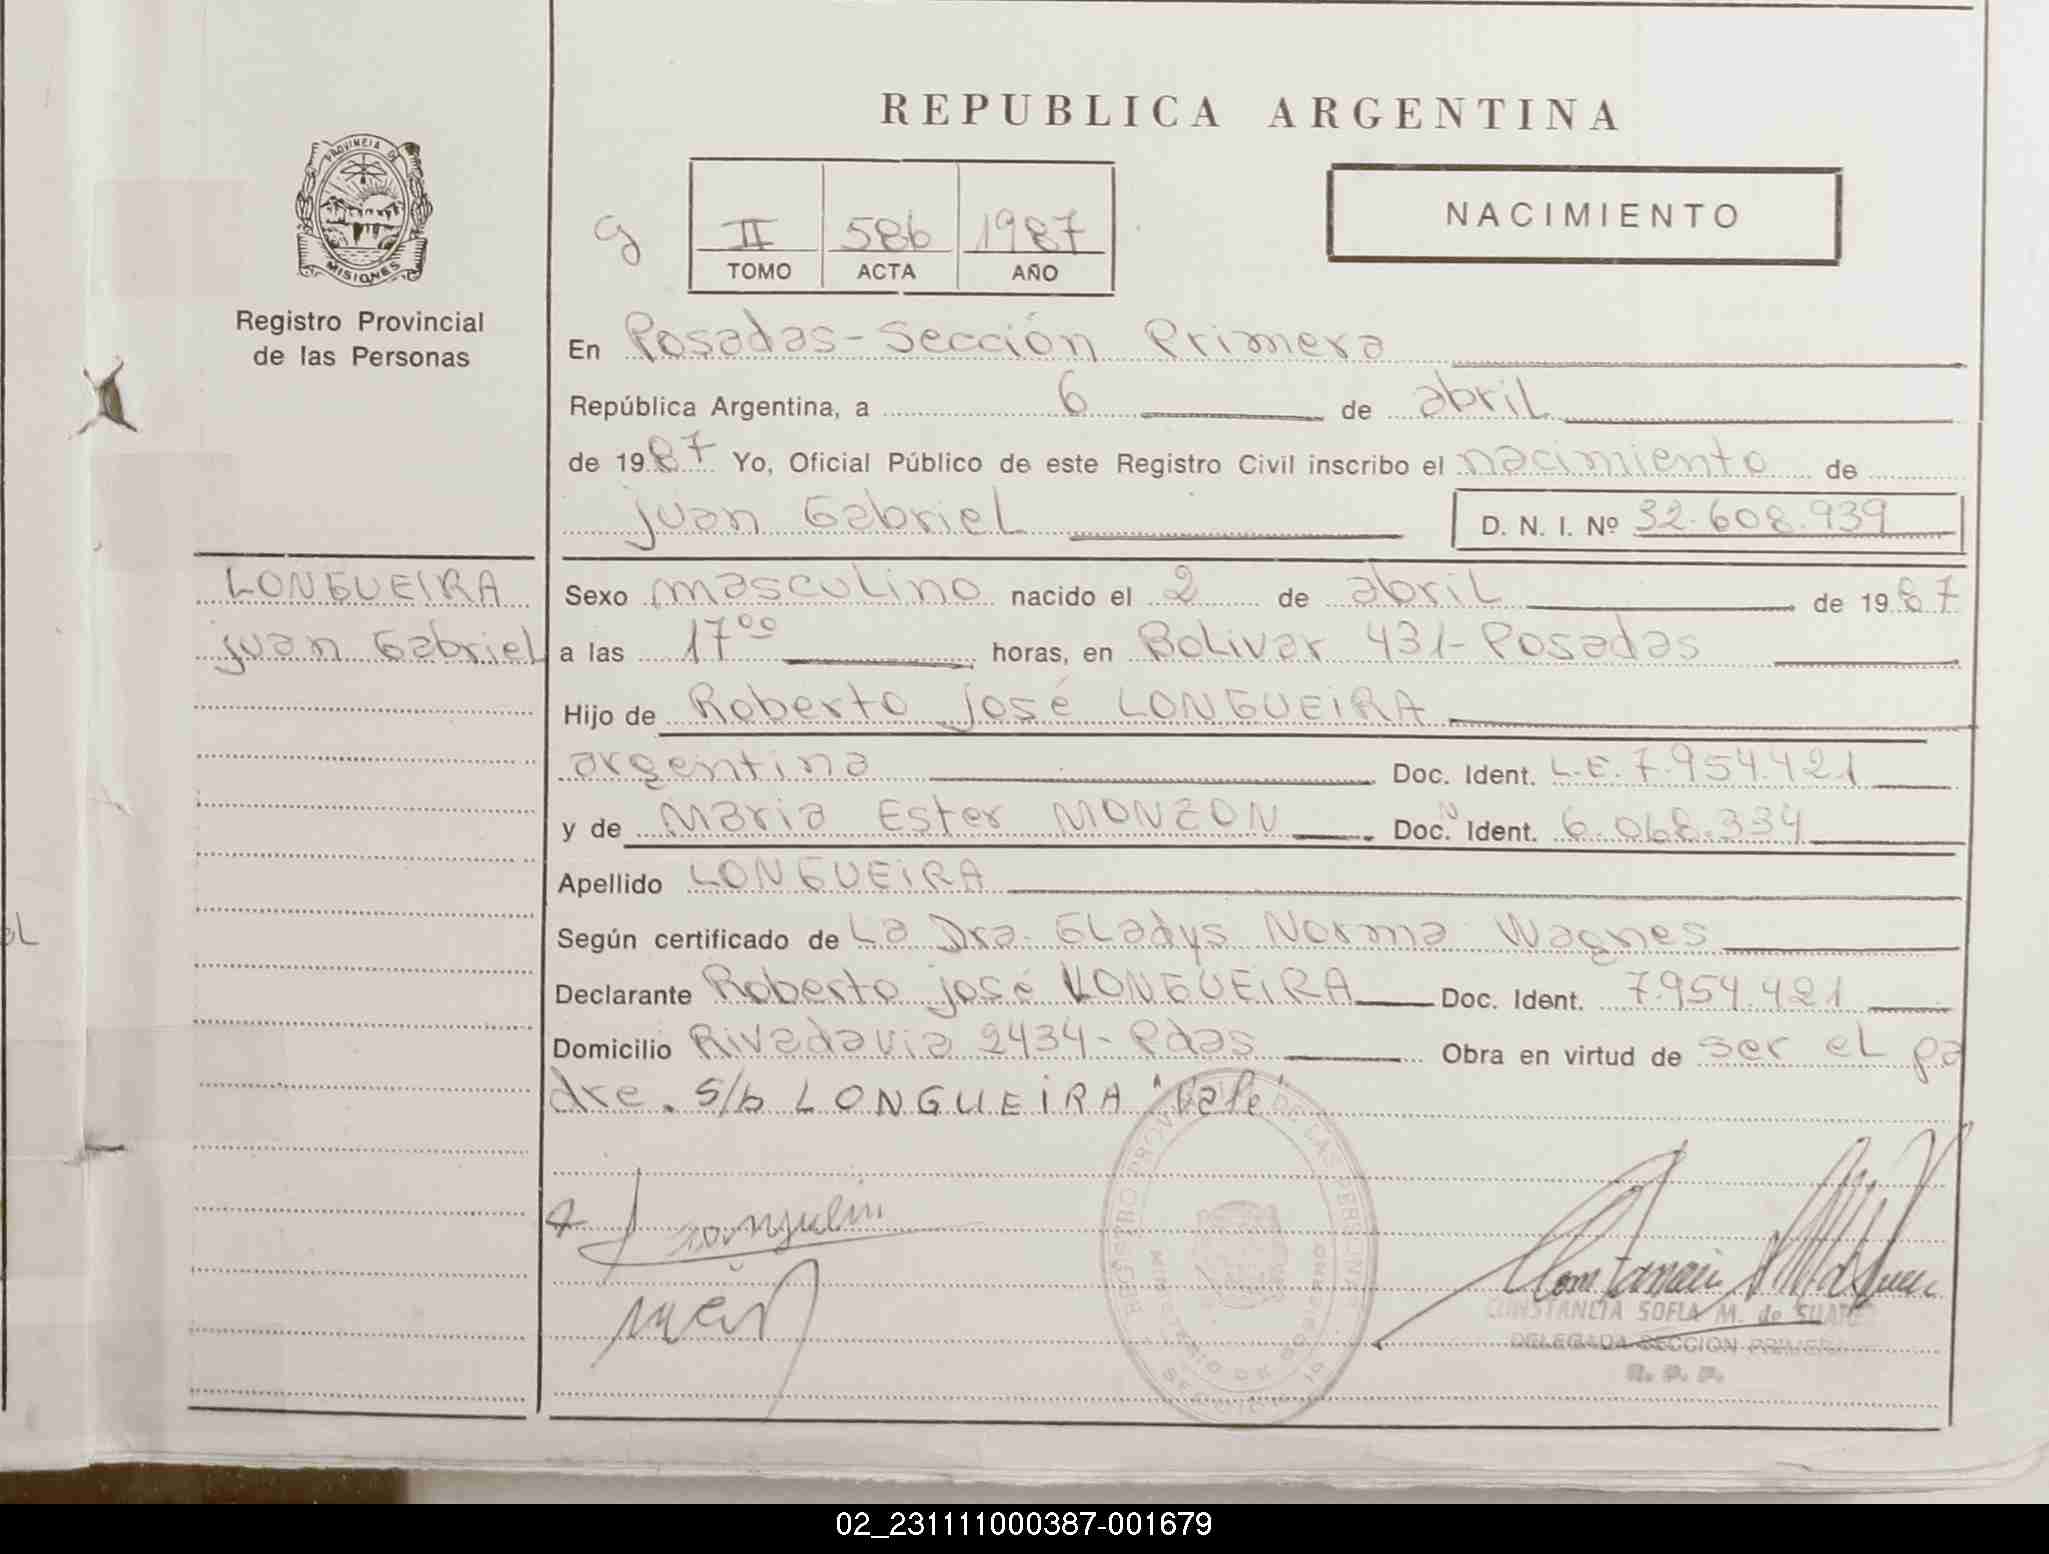 REPUBLICA ARGENTINA
PROVINCIA DE
MISIONES
Registro Provincial
de las Personas
II 586 1987
TOMO ACTA AÑO
NACIMIENTO
En Posadas-Sección Primera
República Argentina, a 6 de abril
de 1987 Yo, Oficial Público de este Registro Civil inscribo el nacimiento de
juan Gabriel D. N. I. Nº 32.608.939
LONGUEIRA
juan Gabriel
Sexo masculino nacido el 2 de abril de 1987
a las 17⁰⁰ horas, en Bolivar 431-Posadas
Hijo de Roberto josé LONGUEiRA
argentina Doc. Ident. L.E. 7.954.421
y de Maria Ester MONZON Doc. Ident. 6.068.334
Apellido LONGUEiRA
Según certificado de La Dra. Gladys Norma Wagnes
Declarante Roberto josé LONGUEiRA Doc. Ident. 7.954.421
Domicilio Rivadavia 2434-Pdas Obra en virtud de ser el pa
dre. S/b LONGUEiRA "Vale"
REGISTRO PROVINCIAL DE LAS PERSONAS
MINISTERIO DE GOBIERNO
CONSTANCIA SOFIA M. de
DELEGADA SECCION PRIMERA
R. P. P.
02_231111000387-001679